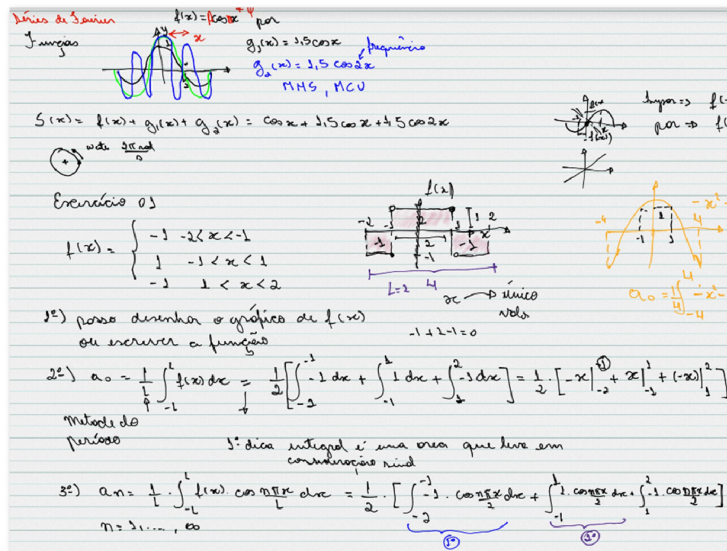 Séries de Fourier
f(x) = cos x par
Função
g₁(x) = 1,5 cos x
g₂(x) = 1,5 cos 2x frequência
MHS, MCU
S(x) = f(x) + g₁(x) + g₂(x) = cos x + 1,5 cos x + 1,5 cos 2x
ímpar => f(-
par => f(
Exercício 01
f(x) = { -1 -2<x<-1
1 -1<x<1
-1 1<x<2
f(x)
-2 -1 1 2
-1 2 -1
-1
L=2 4
x → único
valor
-1+2-1=0
-4 -1 1 -x²-
a₀ = 1/4 ∫₋₄⁴ -x²-
1º) posso desenhar o gráfico de f(x)
ou escrever a função
2º) a₀ = 1/L ∫₋L^L f(x) dx = 1/2 [∫₋₂⁻¹ -1 dx + ∫₋₁¹ 1 dx + ∫₁² -1 dx] = 1/2 · [-x|₋₂⁻¹ + x|₋₁¹ + (-x)|₁²]
metade do
período
1ª dica integral é uma area que leva em
consideração sinal
3º) an = 1/L · ∫₋L^L f(x) · cos nπx/L dx = 1/2 · [∫₋₂⁻¹ -1 · cos nπx/2 dx + ∫₋₁¹ 1 · cos nπx/2 dx + ∫₁² -1 · cos nπx/2 dx]
n = 1, ..., ∞